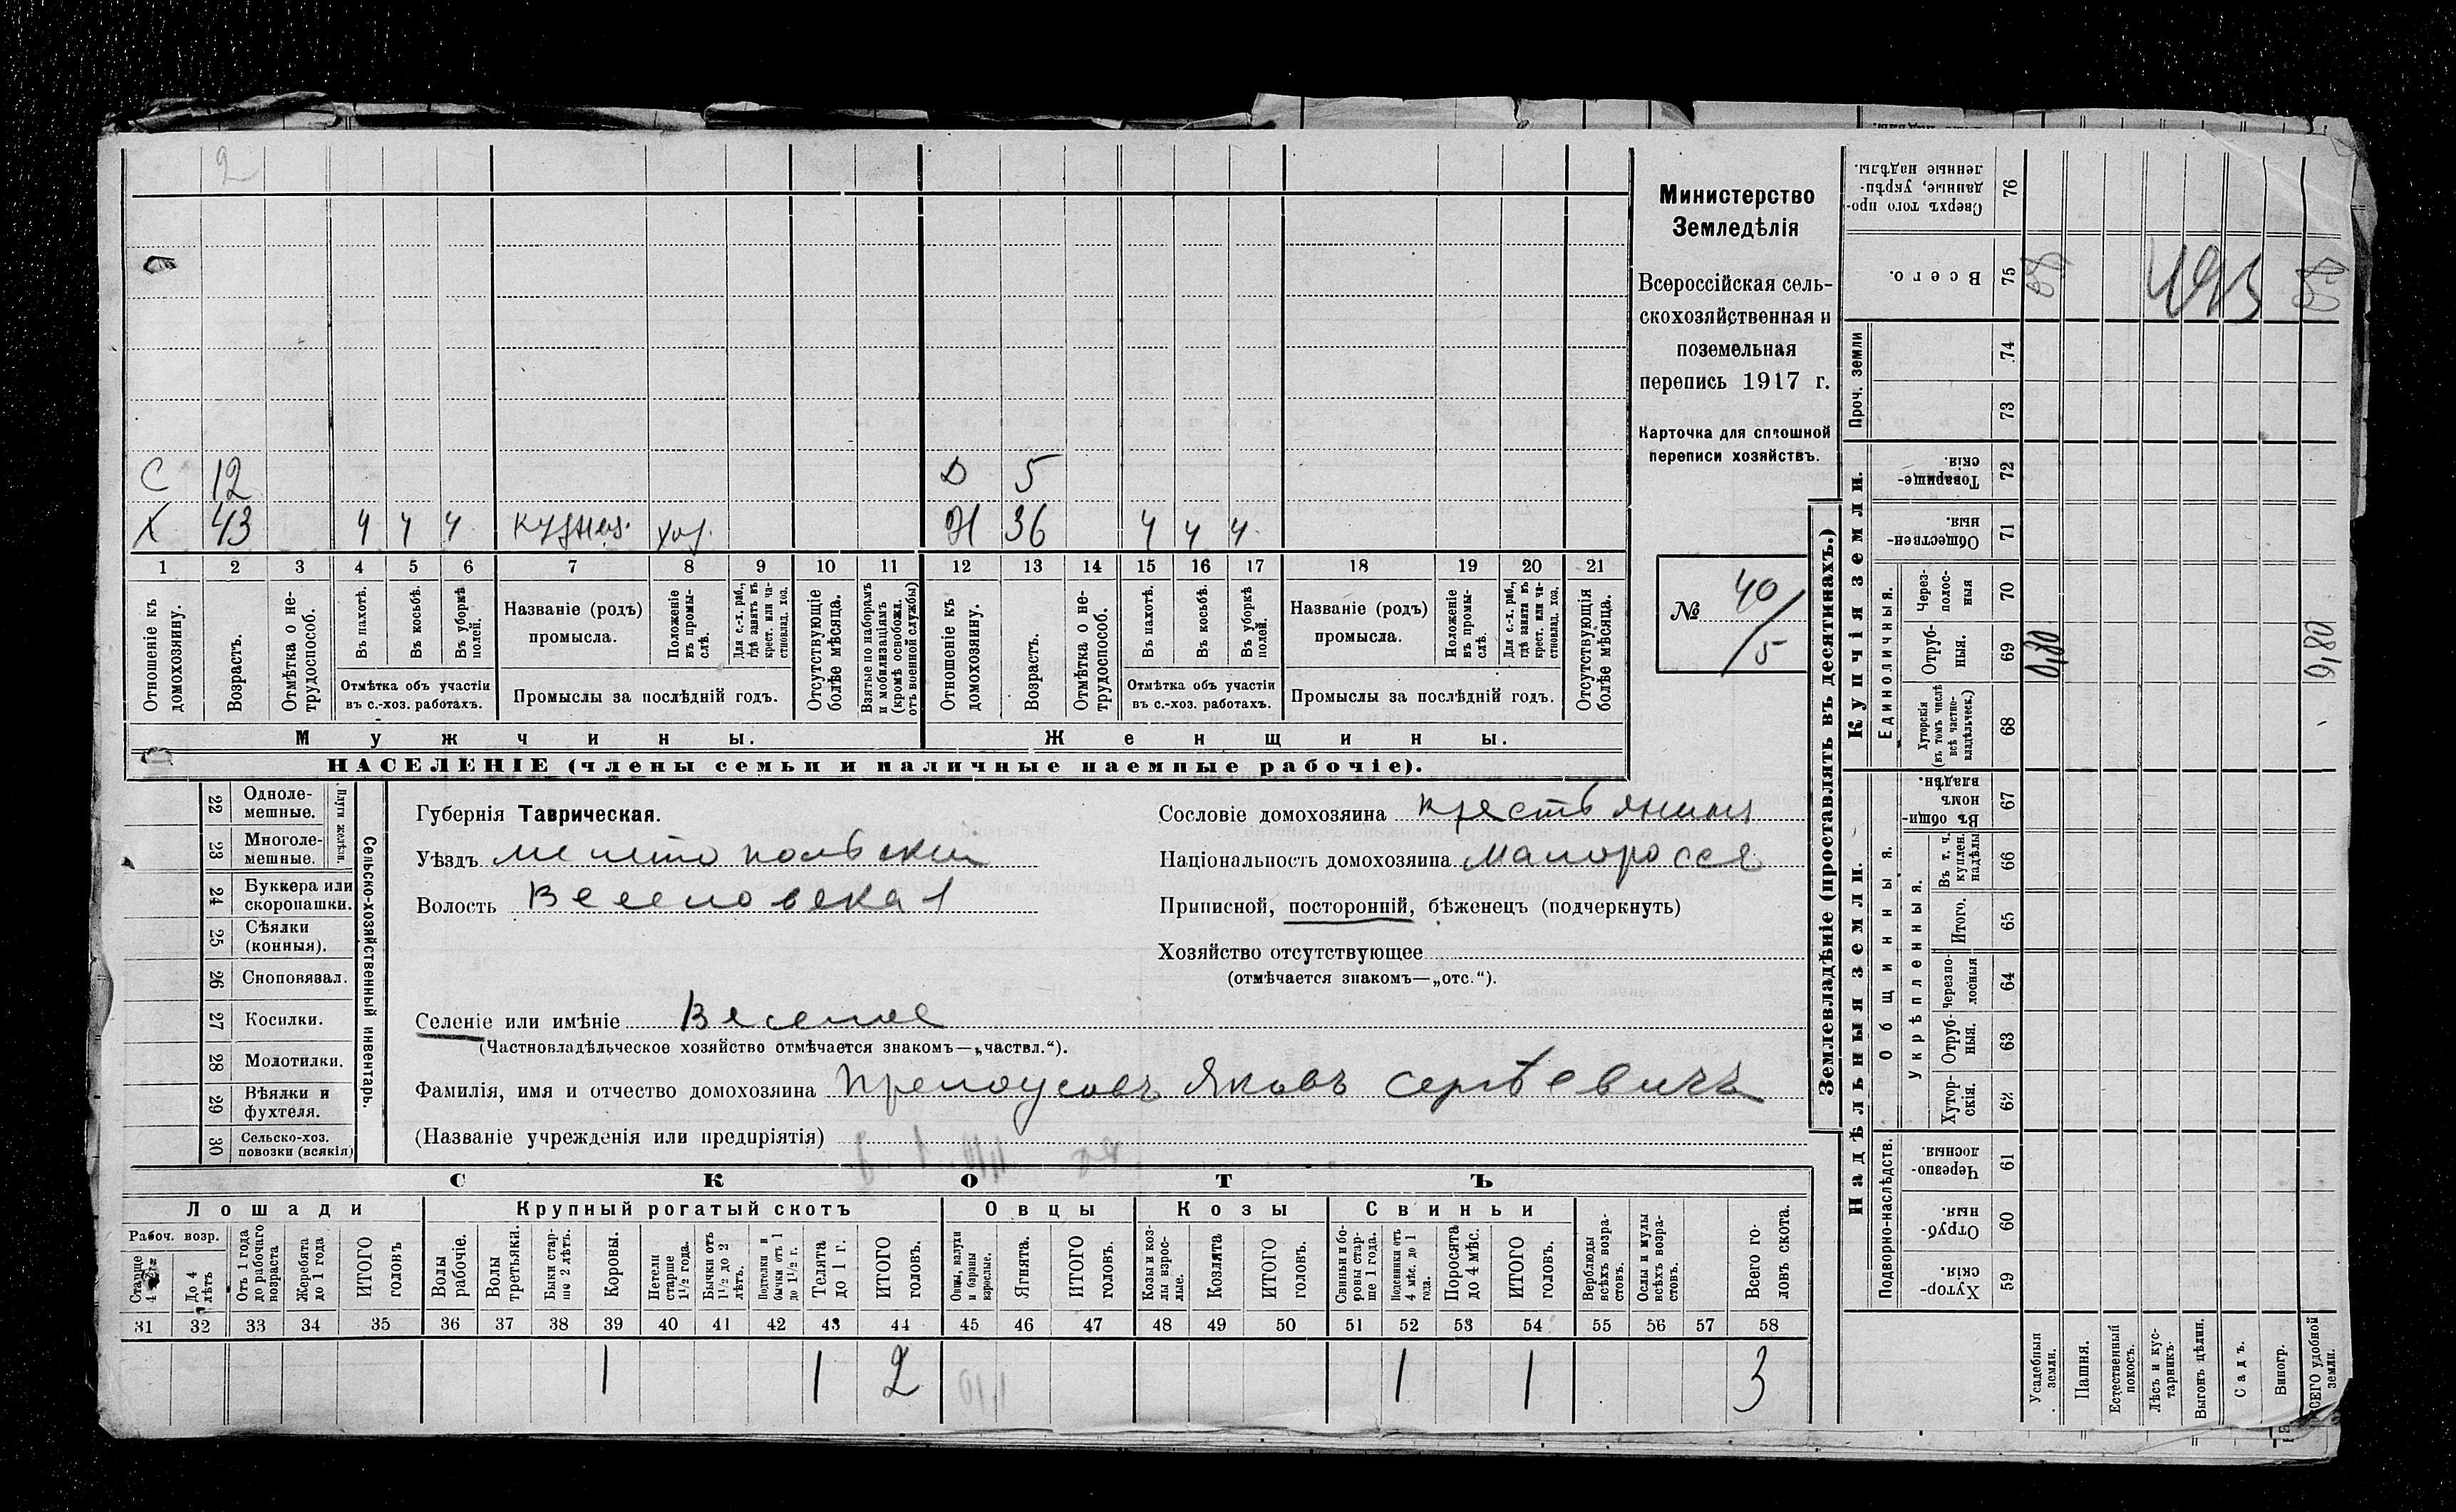 2
С 12 Д 5
Х 43 ч ч ч кузнец. хоз. Ж 36 ч ч ч
1 2 3 4 5 6 7 8 9 10 11 12 13 14 15 16 17 18 19 20 21
Отношеніе къ домохозяину.
Возрастъ.
Отмѣтка о не-трудоспособ.
Въ пахотѣ.
Въ косьбѣ.
Въ уборкѣ полей.
Отмѣтка объ участіи
въ с.-хоз. работахъ.
Названіе (родъ)
промысла.
Положеніе въ промы-слѣ.
Для с.-х. раб., гдѣ занятъ въ крест. или ча-стновлад. хоз.
Промыслы за послѣдній годъ.
Отсутствующіе болѣе мѣсяца.
Взятые по наборамъ и мобилизаціямъ (кромѣ освобожл. отъ военной службы)
Отношеніе къ домохозяину.
Возрастъ.
Отмѣтка о не-трудоспособ.
Въ пахотѣ.
Въ косьбѣ.
Въ уборкѣ полей.
Отмѣтка объ участіи
въ с.-хоз. работахъ.
Названіе (родъ)
промысла.
Положеніе въ промы-слѣ.
Для с.-х. раб., гдѣ занята въ крест. или ча-стновлад. хоз.
Промыслы за послѣдній годъ.
Отсутствующія болѣе мѣсяца.
Мужчины. Женщины.
НАСЕЛЕНІЕ (члены семьи и наличные наемные рабочіе).
Министерство
Земледѣлія
Всероссійская сель-
скохозяйственная и
поземельная
перепись 1917 г.
Карточка для сплошной
переписи хозяйствъ.
№ 40/5
22 Одноле-мешные.
23 Многоле-мешные.
Плуги желѣзн.
24 Буккера или скоропашки.
25 Сѣялки (конныя).
26 Сноповязал.
27 Косилки.
28 Молотилки.
29 Вѣялки и фухтеля.
30 Сельско-хоз. повозки (всякія)
Сельско-хозяйственный инвентарь.
Губернія Таврическая.
Уѣздъ Мелитопольский
Волость Веселовская
Селеніе или имѣніе Веселое
(Частновладѣльческое хозяйство отмѣчается знакомъ—„частвл.“).
Фамилія, имя и отчество домохозяина Прелоусовъ Яковъ Сергѣевичъ
(Названіе учрежденія или предпріятія)
Сословіе домохозяина крестьянинъ
Національность домохозяина малоросся
Приписной, посторонній, бѣженецъ (подчеркнуть)
Хозяйство отсутствующее
(отмѣчается знакомъ—„отс.“).
СКОТЪ
Лошади Крупный рогатый скотъ Овцы Козы Свиньи
Рабоч. возр.
Старше 4 лѣтъ
До 4 лѣтъ
Отъ 1 года до рабочаго возраста
Жеребята до 1 года
ИТОГО головъ
Волы рабочіе.
Волы третьяки.
Быки стар-ше 2 лѣтъ.
Коровы.
Нетели старше 1½ года.
Бычки отъ 1½ до 2 лѣтъ.
Подтелки и бычки отъ 1 до 1½ г.
Телята до 1 г.
ИТОГО головъ.
Овцы, валухи и бараны взрослые.
Ягнята.
ИТОГО головъ.
Козы и коз-лы взрос-лые.
Козлята
ИТОГО головъ.
Свиньи и бо-ровы стар-ше 1 года.
Подсвинки отъ 4 мѣс. до 1 года.
Поросята до 4 мѣс.
ИТОГО головъ.
Верблюды всѣхъ возра-стовъ.
Ослы и мулы всѣхъ возра-стовъ.
Всего го-ловъ скота.
31 32 33 34 35 36 37 38 39 40 41 42 43 44 45 46 47 48 49 50 51 52 53 54 55 56 57 58
1 1 2 1 1 3
Землевладѣніе (проставлять въ десятинахъ.)
Сверхъ того про-данные, укрѣп-ленные надѣлы. 76
Всего. 75
Проч. земли 74 73
Купчія земли.
Товарище-скія. 72
Обществен-ныя. 71
Единоличныя.
Через-полос-ныя 70
Отруб-ныя. 69 0,80 0,80
Хуторскія (въ томъ числѣ всѣ частно-владѣльческ.) 68
Надѣльныя земли.
Общинныя.
Въ общи-номъ владѣн. 67
Укрѣпленныя.
Въ т. ч. куплен. надѣлы 66
Итого. 65
Черезпо-лосныя 64
Отруб-ныя. 63
Хутор-скія. 62
Подворно-наслѣдств.
Черезпо-лосныя. 61
Отруб-ныя. 60
Хутор-скія. 59
Усадебныя земли.
Пашня.
Естественный покосъ.
Лѣсъ и кус-тарникъ.
Выгонъ цѣлин.
Садъ.
Виногр.
ВСЕГО удобной земли.